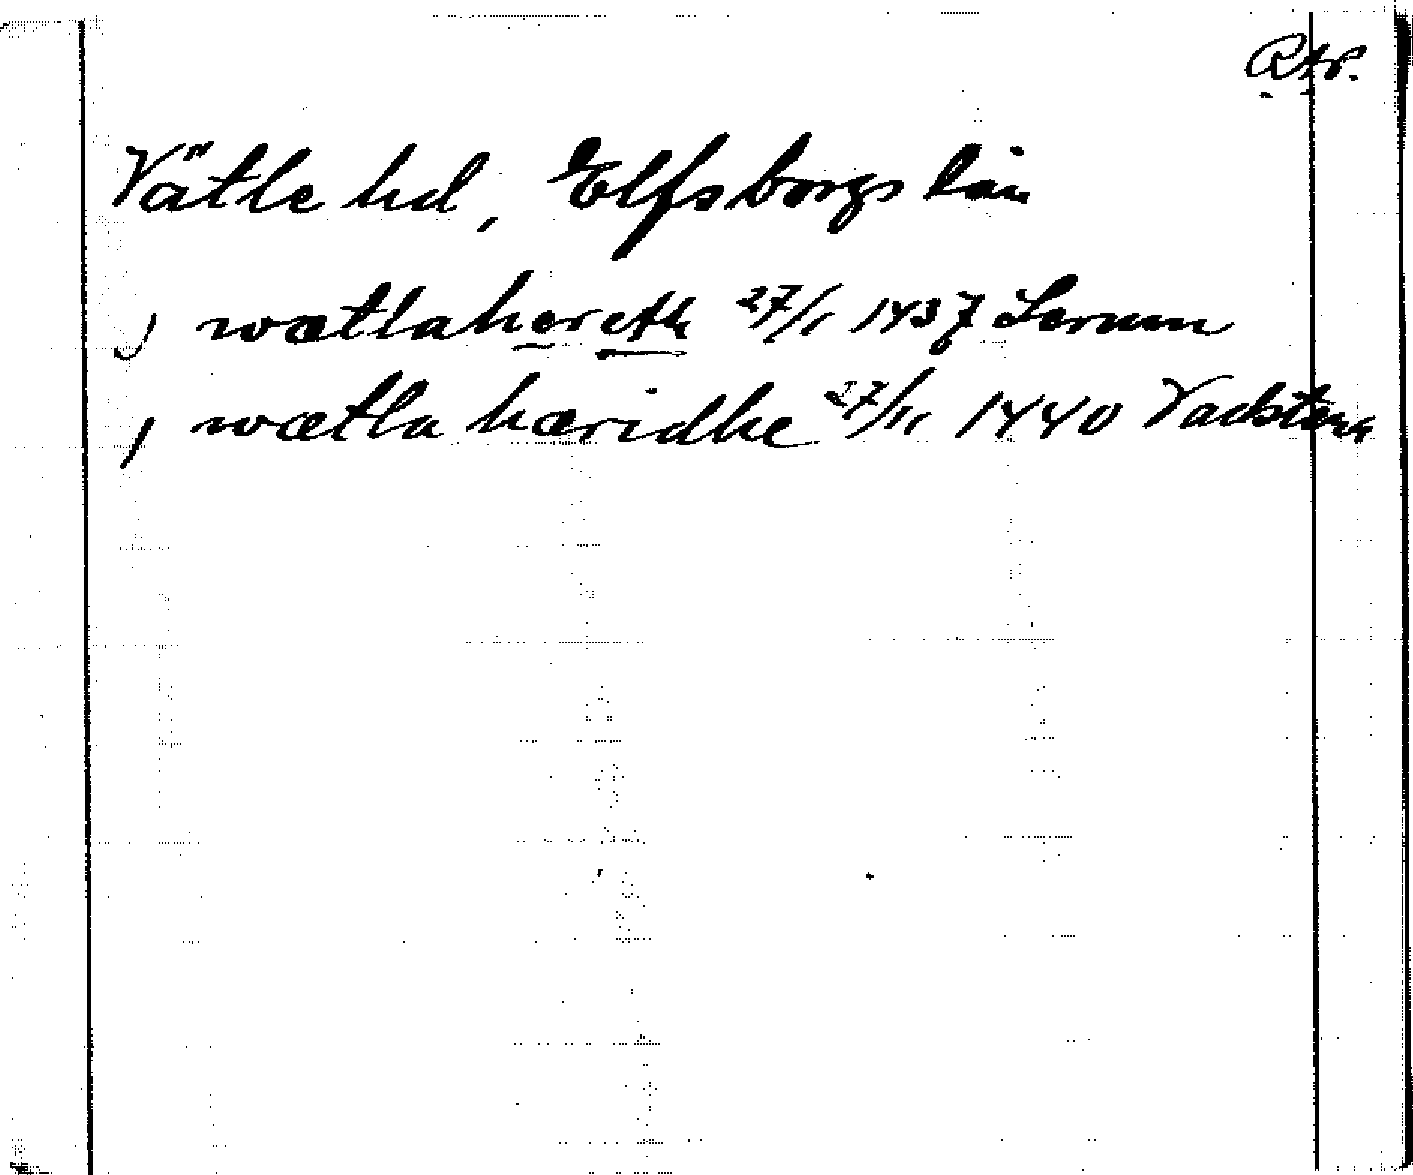 RAP.
Vätle hd, Elfsborgs län
j wætlahereth 27/1 1437 Lerum
j wætla hæridhe 27/11 1440 Vadstena